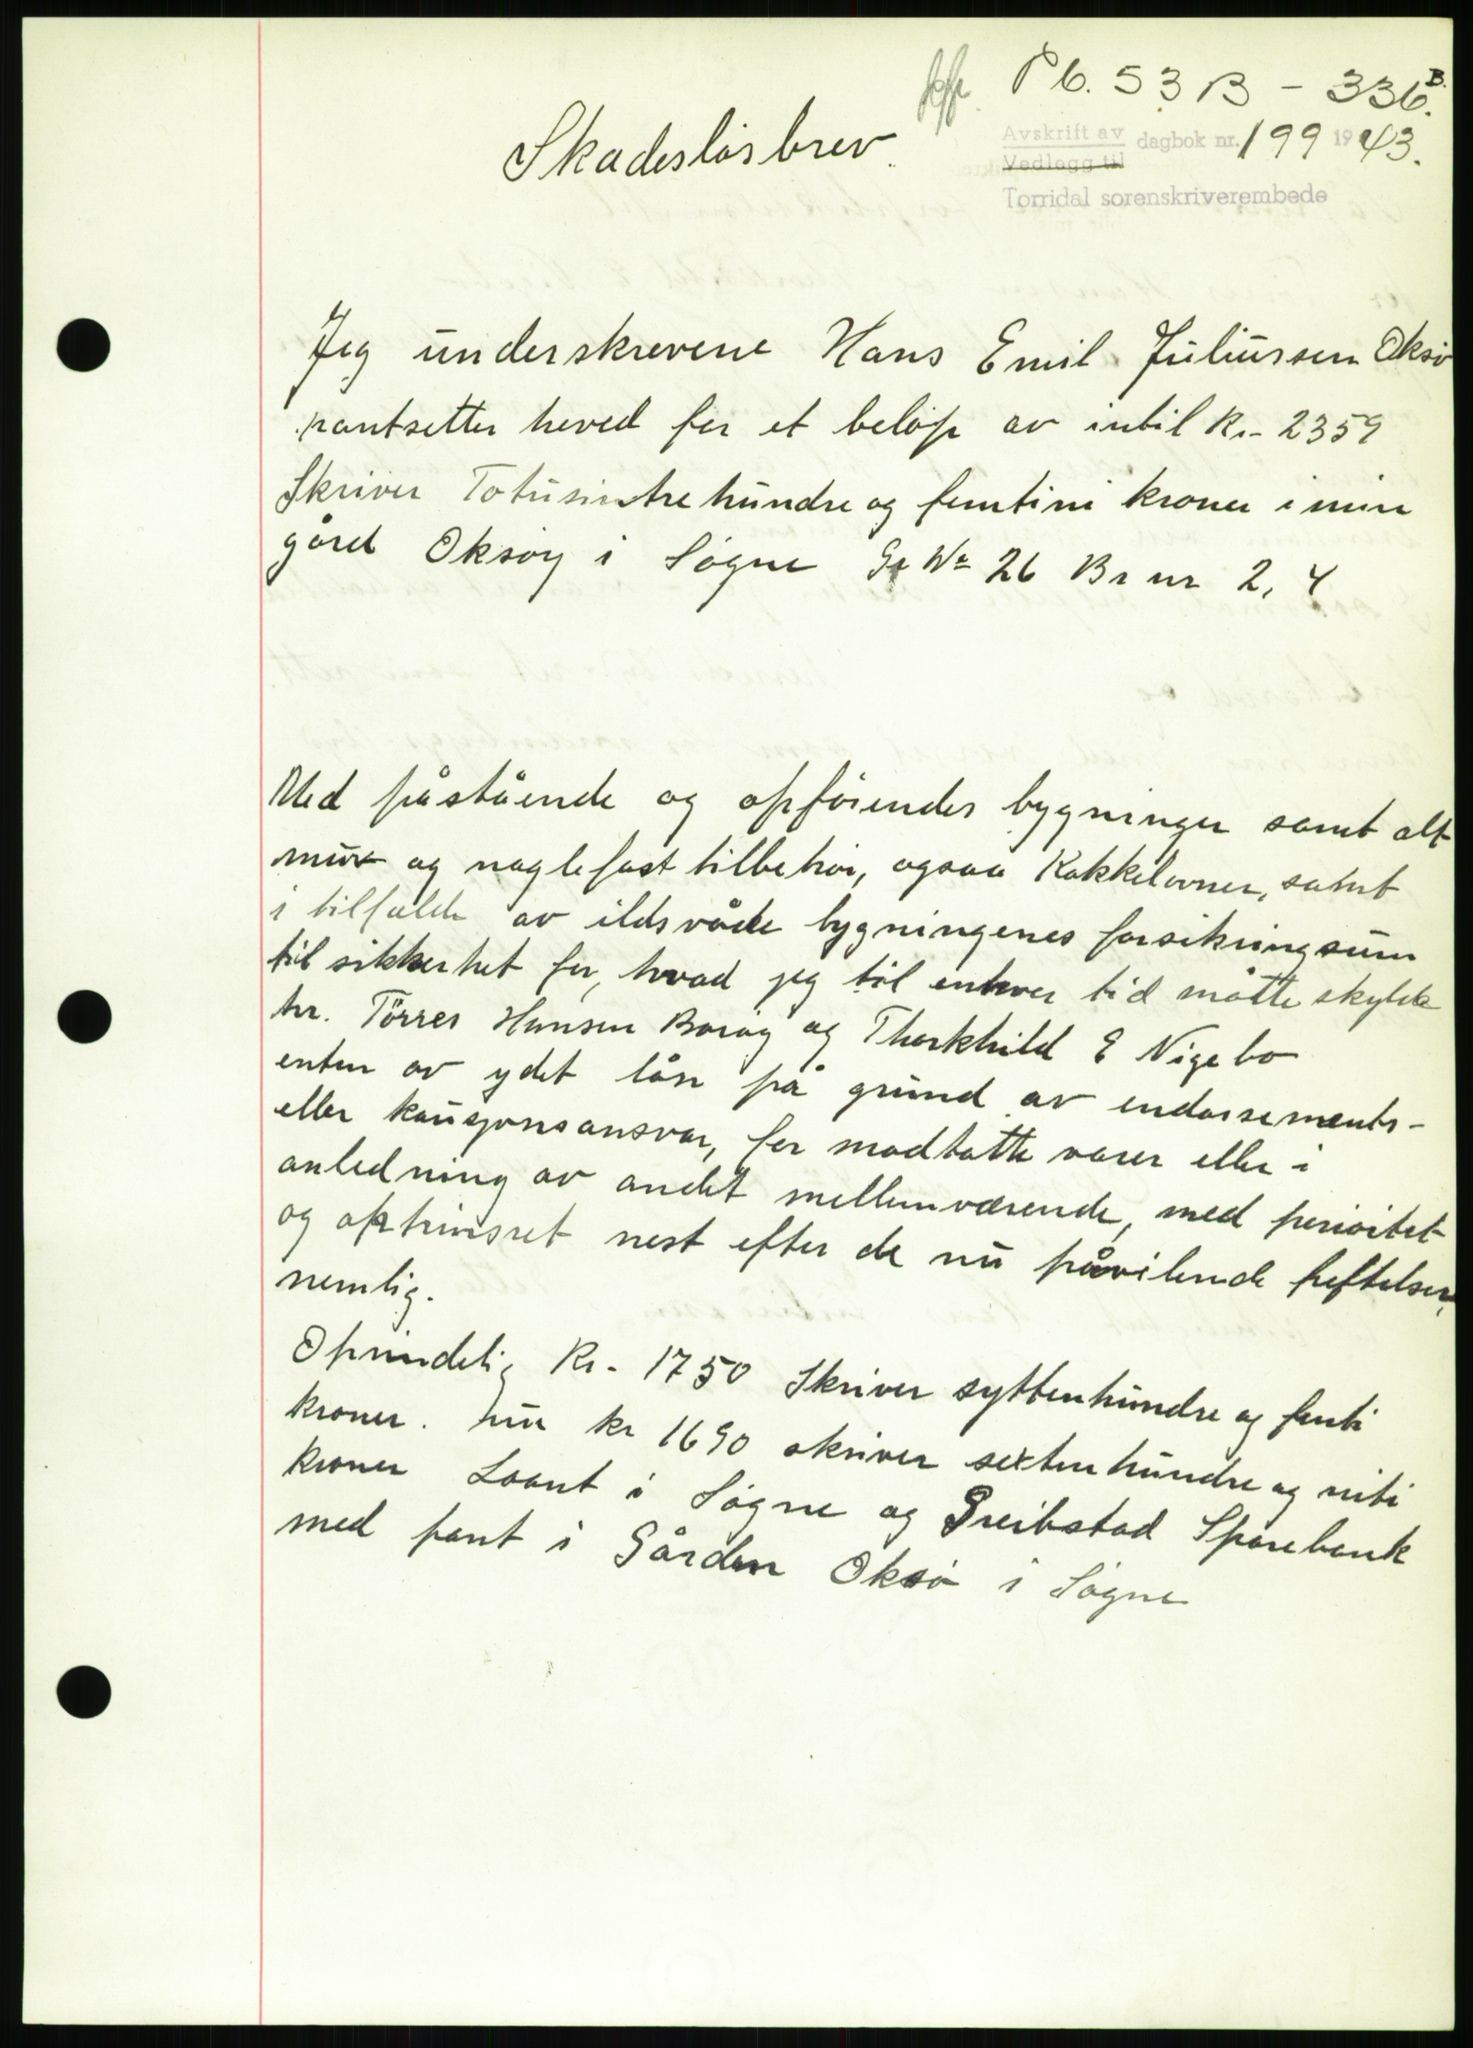 Pb. 53 B - 336. B.
Skadesløsbrev.
Avskrift av
Vedlegg til
dagbok nr. 199 1943.
Torridal sorenskriverembede
Jeg underskrevene Hans Emil Juliussen Oksø
pantsetter herved for et beløp av intil Kr- 2359
Skriver Totusintrehundre og femtini kroner i min
gård Oksøy i Søgne Gr No 26 Br nr 2, 4
Med påstående og opførendes bygninger samt alt
mur og naglefast tilbehør, ogsaa Kakkelovner, samt
i tilfælde av ildsvåde bygningenes forsikringsum
til sikkerhet for, hvad jeg til enhver tid måtte skylde
hr. Tørres Hansen Borøy og Thorkhild E Nigebo
enten av ydet lån på grund av endossements-
eller kausjonsansvar, for modtatte varer eller i
anledning av andet mellemværende, med perioitet
og optrinsret nest efter de nu påvilende heftelser,
nemlig.
Oprindelig Kr- 1750 Skriver syttenhundre og femti
kroner. nu kr 1690 skriver sextenhundre og niti
kroner Laant i Søgne og Greibstad Sparebank
med pant i Gården Oksø i Søgne